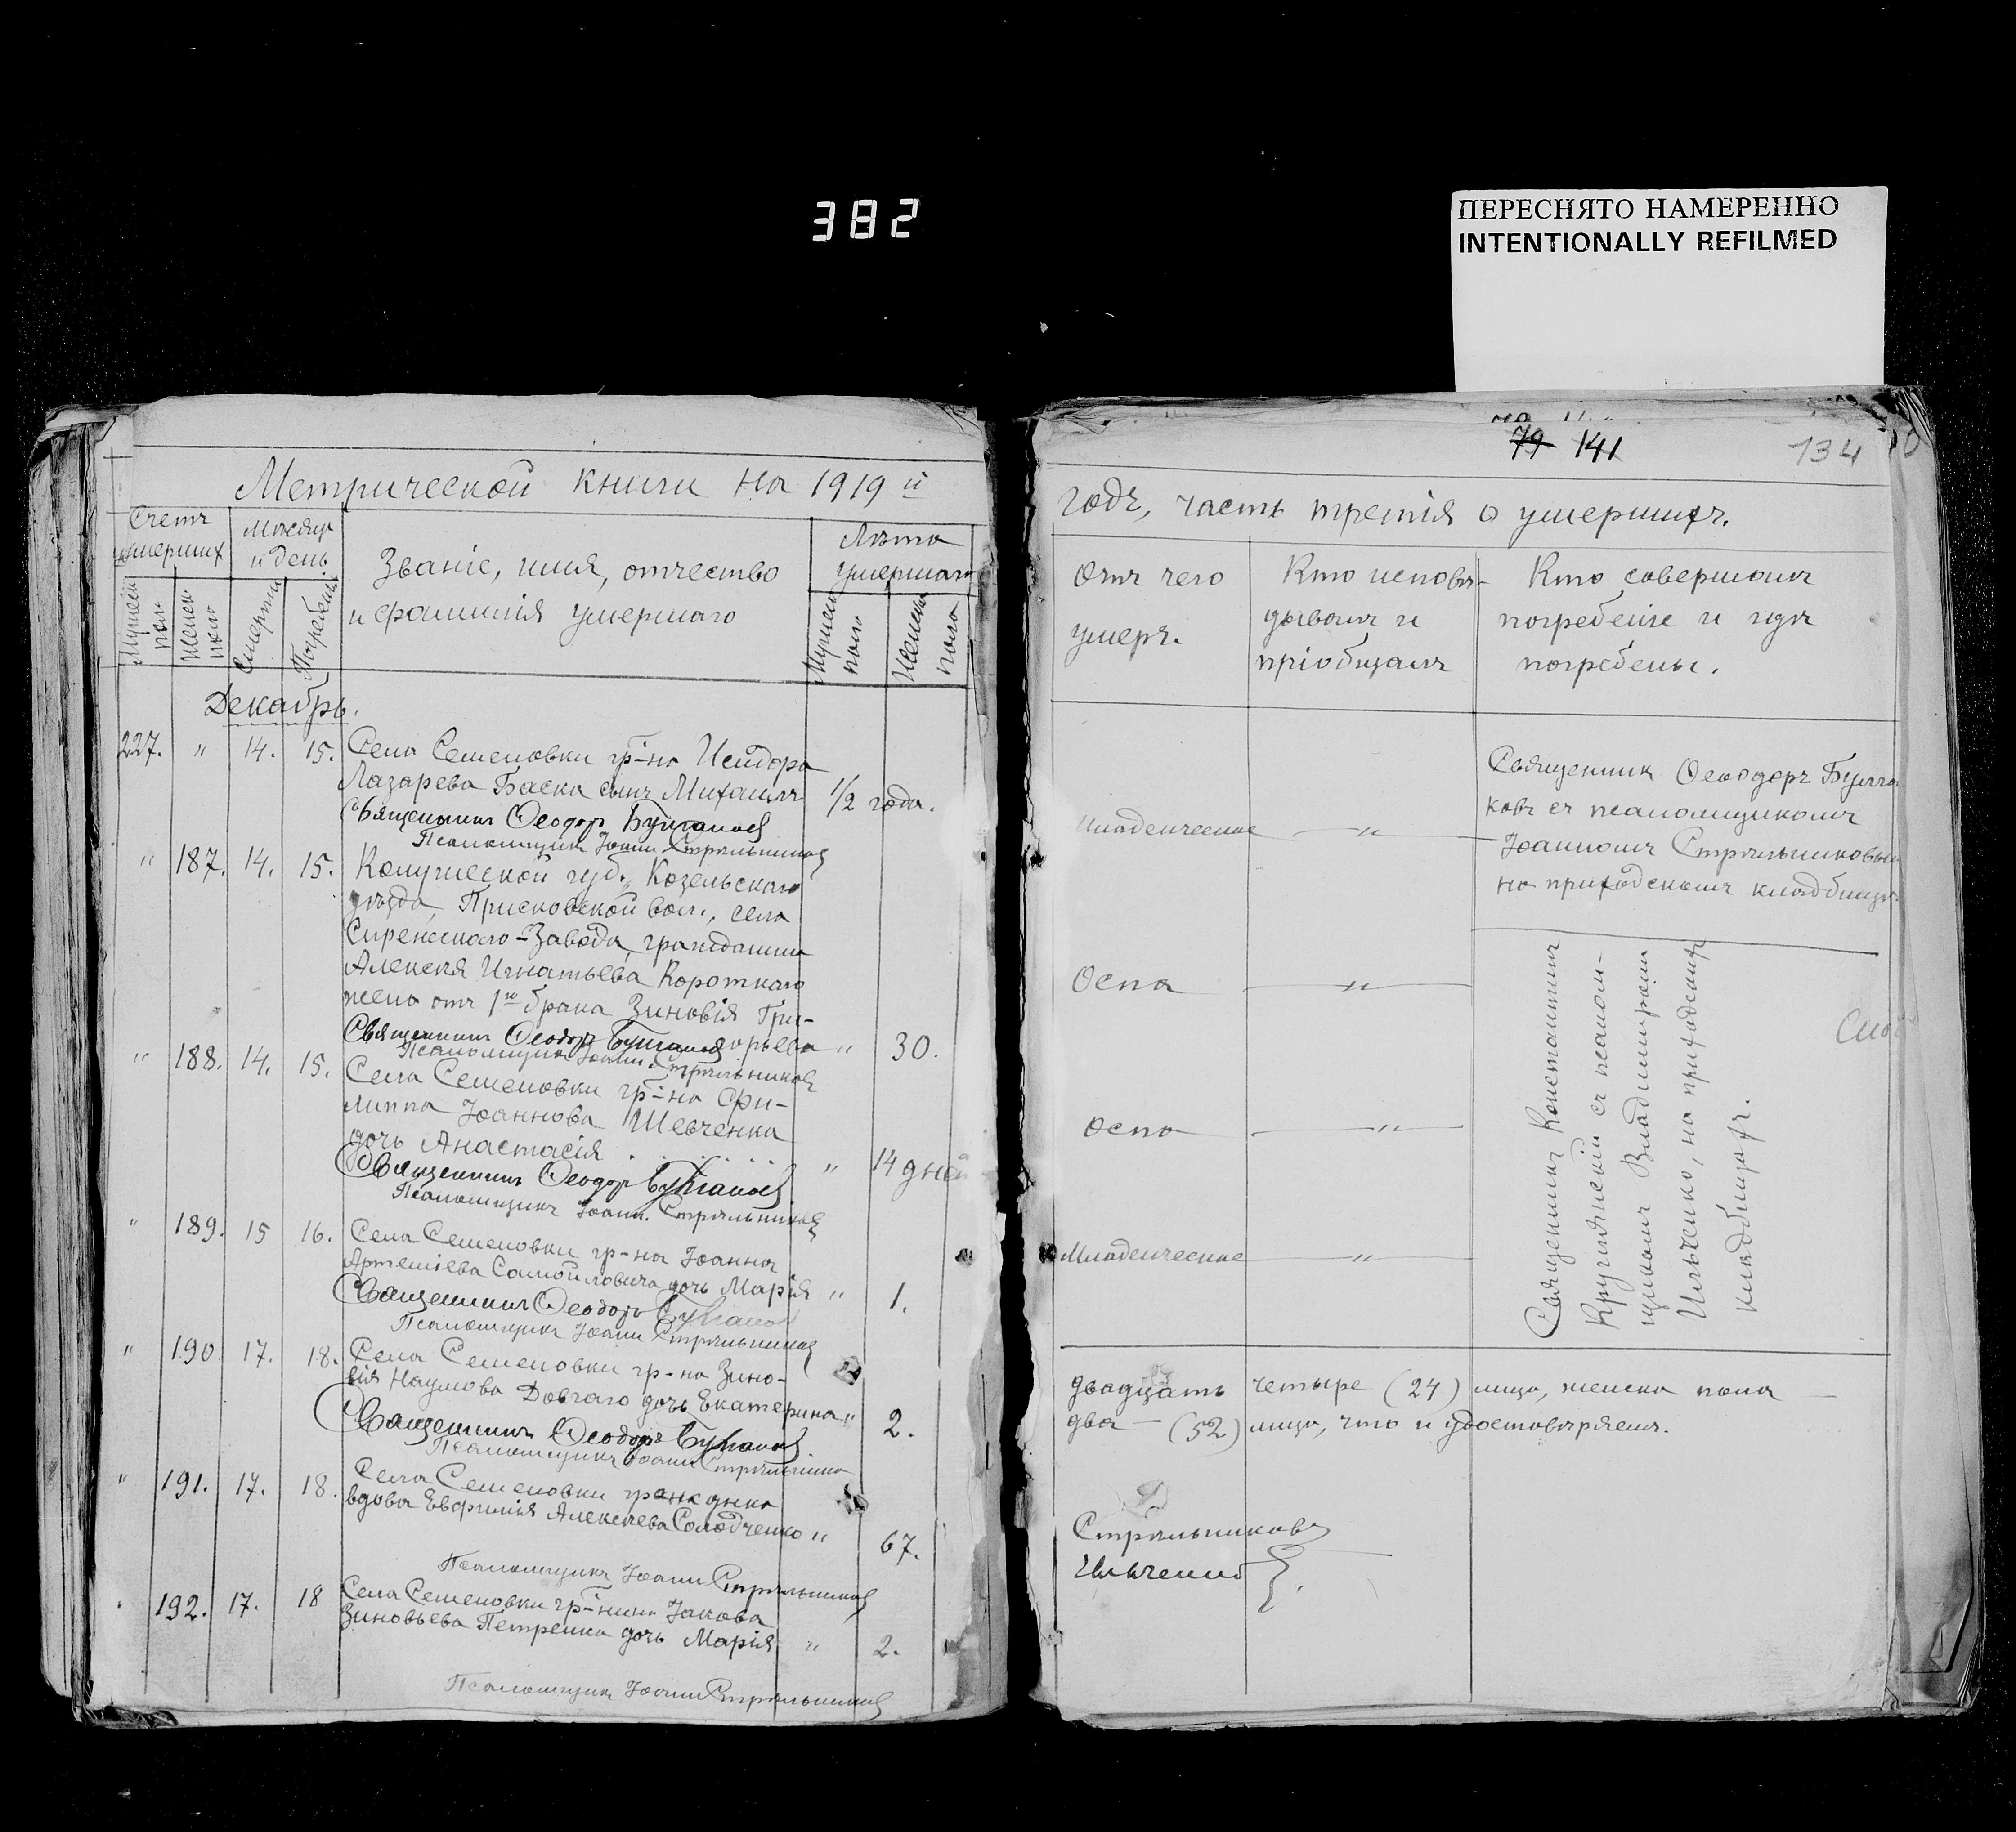 382
ПЕРЕСНЯТО НАМЕРЕННО
INTENTIONALLY REFILMED
Метрической книги на 1919 й
Счетъ умершихъ
Мѣсяцъ и день
Званіе, имя, отчество
и фамилія умершаго
Лѣта умершаго
Мужеск. пола
Женск. пола
Смерти
Погребенія
Мужеск. пола
Женска пола
Декабрь.
227. " 14. 15. Села Семеновки гр-на Исидора
Лазарева Баска сынъ Михаилъ 1/2 года.
Священникъ Ѳеодоръ Булгаковъ
Псаломщикъ Іоаннъ Стрѣльниковъ
" 187. 14. 15. Калужеской губ., Козельскаго
уѣзда, Присковской вол., села
Сиренскаго-Завода, гражданина
Алексѣя Игнатьева Короткаго
жена отъ 1го брака Зиновія Гри-
горьева " 30.
Священникъ Ѳеодоръ Булгаковъ
Псаломщикъ Іоаннъ Стрѣльниковъ
" 188. 14. 15. Села Семеновки гр-на Фи-
липпа Іоаннова Шевченка
дочь Анастасія " 14 дней
Священникъ Ѳеодоръ Булгаковъ
Псаломщикъ Іоанн. Стрѣльниковъ
" 189. 15 16. Села Семеновки гр-на Іоанна
Артеміева Самойловича дочь Марія " 1.
Священникъ Ѳеодоръ Булгаковъ
Псаломщикъ Іоаннъ Стрѣльниковъ
" 190 17. 18. Села Семеновки гр-на Зино-
вія Наумова Довгаго дочь Екатерина " 2.
Священникъ Ѳеодоръ Булгаковъ
Псаломщикъ Іоаннъ Стрѣльников
" 191. 17. 18. Села Семеновки гражднка
вдова Евфимія Алексѣева Солодченко " 67.
Псаломщикъ Іоаннъ Стрѣльниковъ
192. 17. 18 Села Семеновки гр-нина Іакова
Зиновьева Петренка дочь Марія " 2.
Псаломщикъ Іоаннъ Стрѣльниковъ
79 141
134
годъ, часть третія о умершихъ.
Отъ чего
умеръ.
Кто исповѣ-
дывалъ и
пріобщалъ
Кто совершалъ
погребеніе и гдѣ
погребены.
Младенческое "
Священникъ Ѳеодоръ Булга
ковъ съ псаломщикомъ
Іоанномъ Стрѣльниковым
на приходскомъ кладбищѣ.
Оспа "
Оспа "
Младенческое "
Священникъ Константинъ
съ псалом-
щикомъ Владимиромъ
Ильченко, на приходскихъ
кладбищахъ.
двадцать четыре (24) лица, женска пола —
два — (52) лица, что и удостовѣряемъ.
Стрѣльниковъ
Ильченко